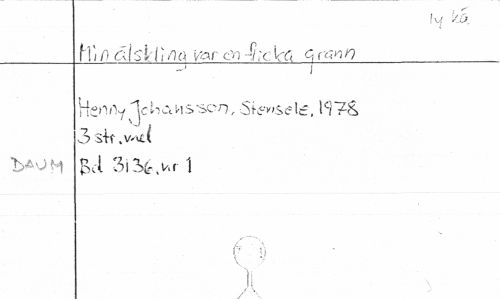 ly kä
Min älskling var en flicka grann
Henny Johansson, Stensele, 1978
3 str. mel
DAUM Bd 3136, nr 1